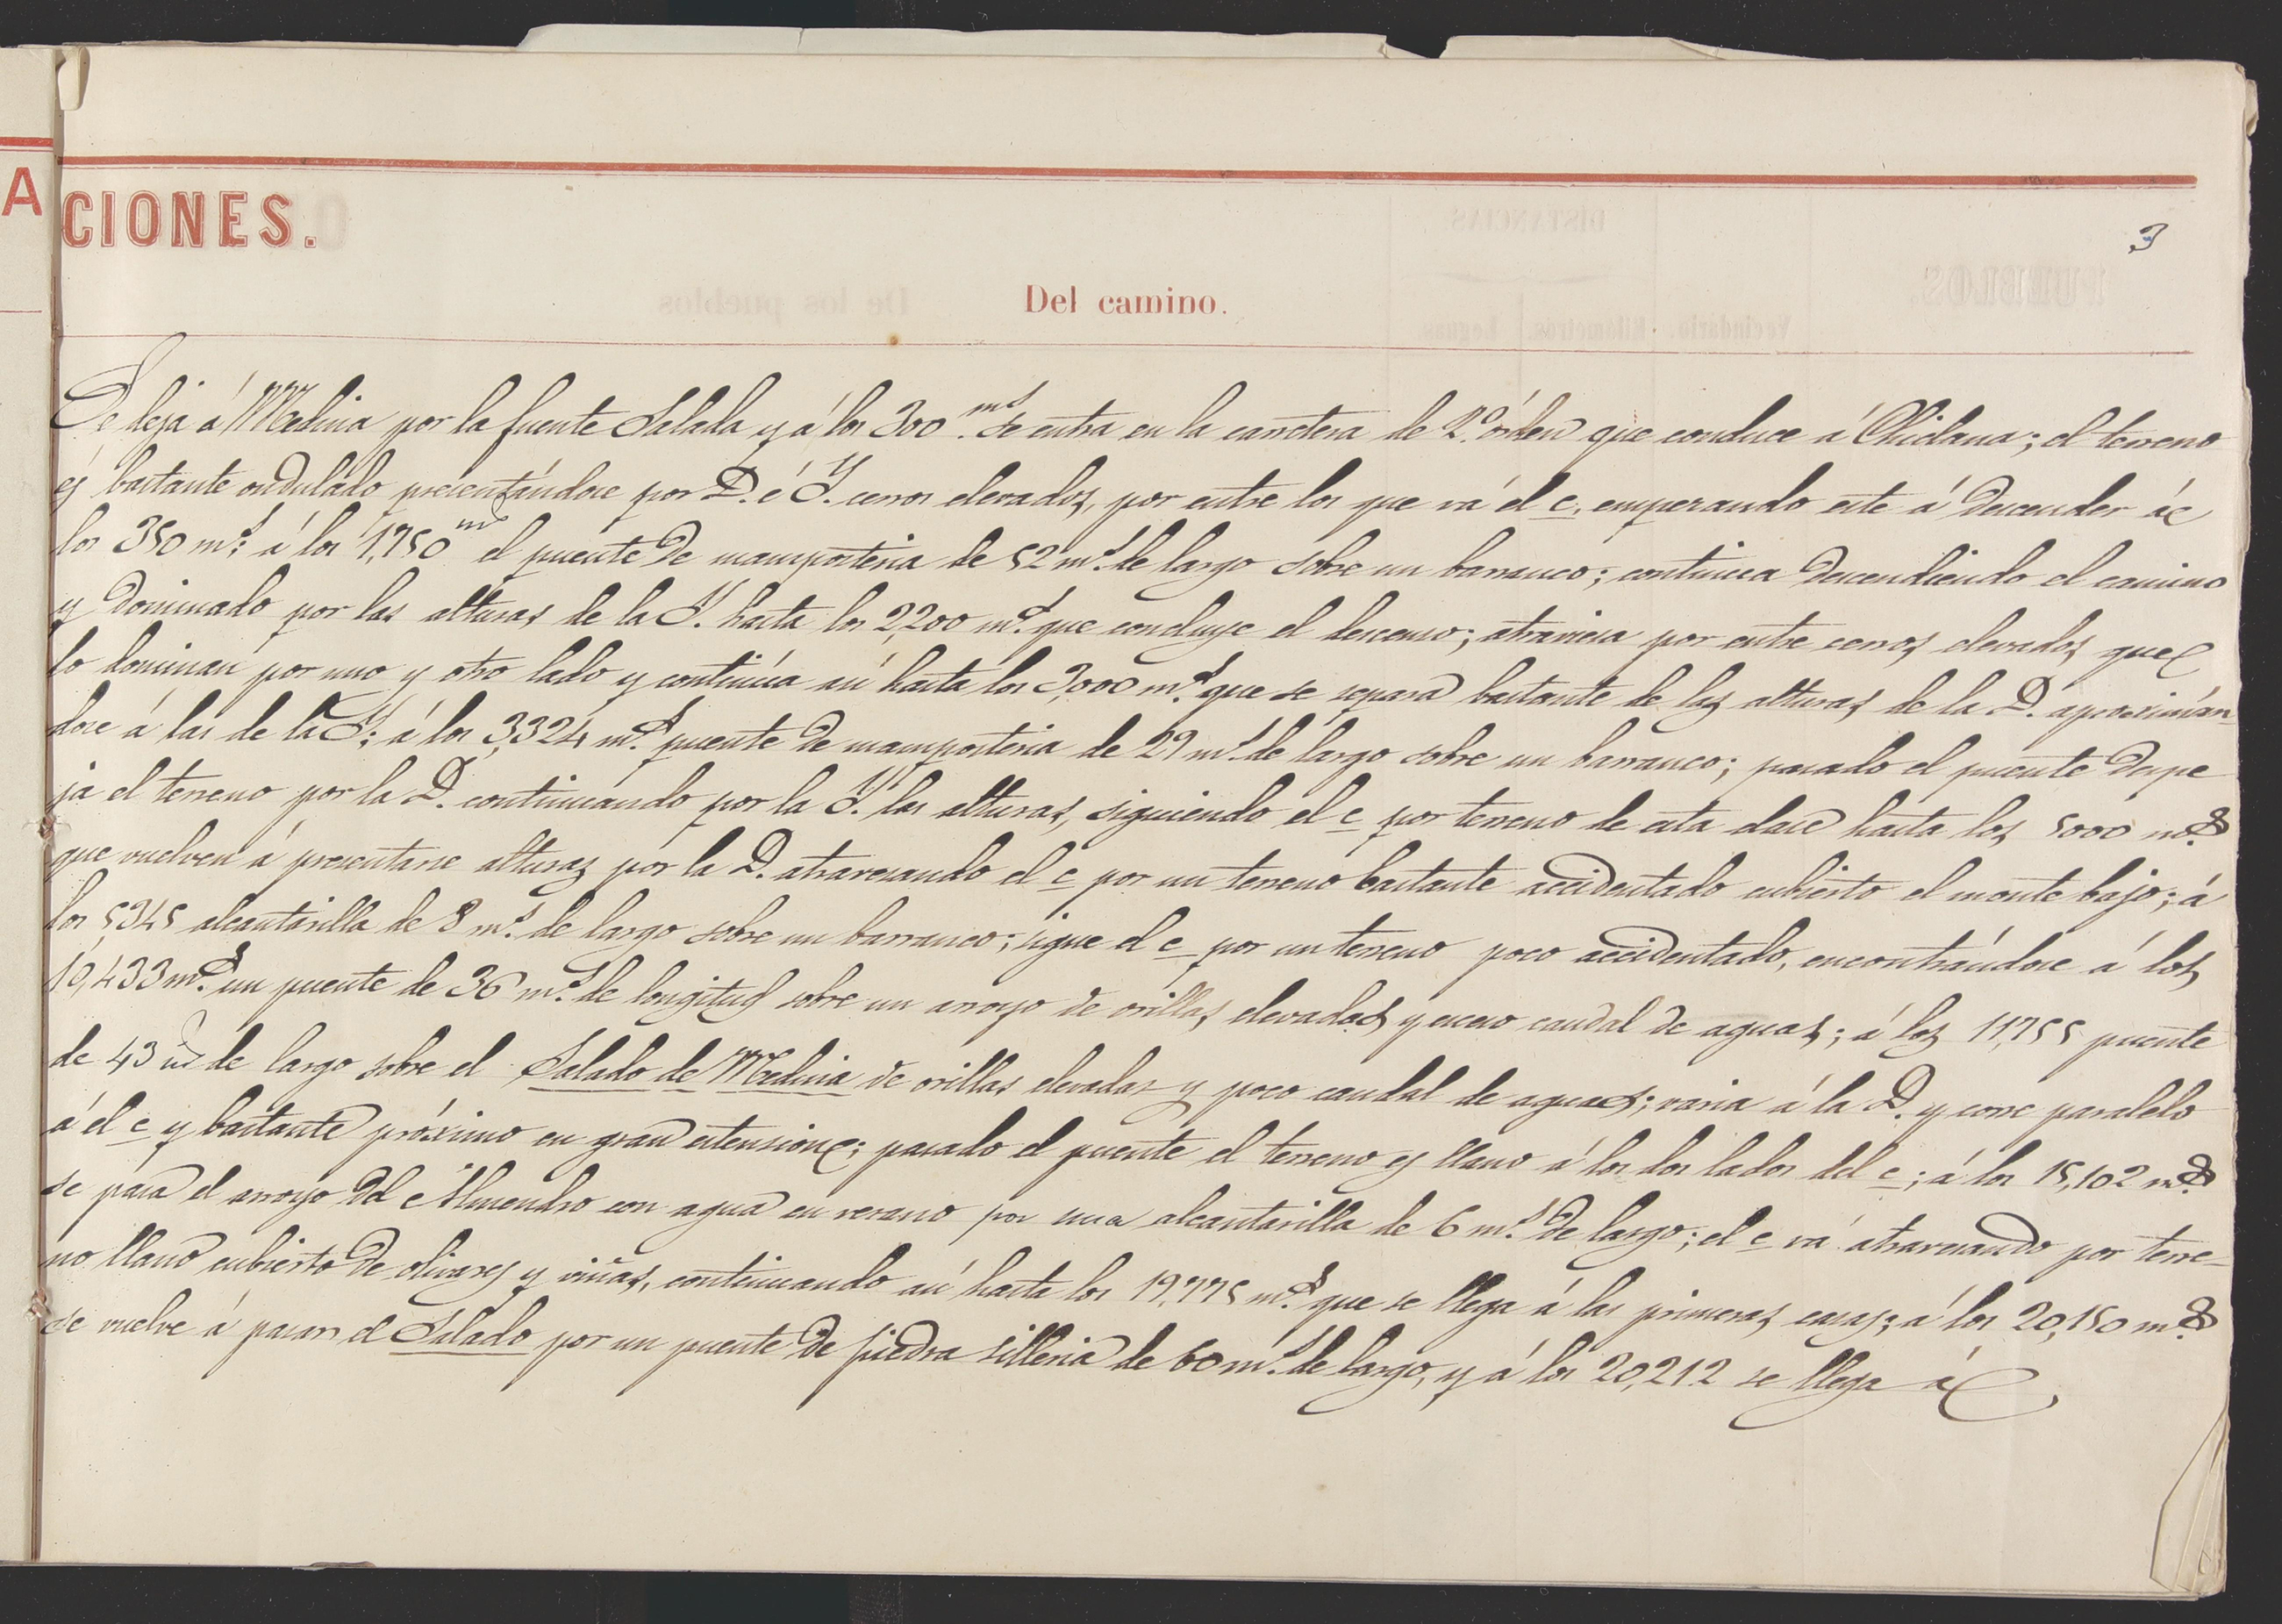 A
CIONES.
3
Del camino.
Se deja á Medina por la fuente Salada y á los 300 ms. se entra en la carretera de 2º. órden que conduce á Chiclana; el terreno
és bastante onduládo presentándose por D. é Y. cerros elevados, por entre los que vá el c. empezando este á descender á
los 350 ms; á los 1,750 ms el puente de mamposteria de 52 ms. de largo sobre un barranco; continúa descendiendo el camino
y dominado por las alturas de la Y. hasta los 2,200 ms. que concluye el descenso; atraviesa por entre cerros elevados que
lo dominan por uno y otro lado y continúa así hasta los 3,000 ms. que se separa bastante de las alturas de la D. aproximán-
dose á las de la Y; á los 3,324 ms. puente de mamposteria de 29 ms. de largo sobre un barranco; pasado el puente despe
ja el terreno por la D. continuando por la Y. las alturas, siguiendo el c por terreno de esta clase hasta los 5000 ms.
que vuelven á presentarse alturas por la D. atravesando el c por un terreno bastante accidentado cubierto el monte bajo; á
los 5,345 alcantarilla de 8 ms. de largo sobre un barranco; sigue el c por un terreno poco accidentado, encontrándose á los
10,433 ms. un puente de 36 ms. de longitud sobre un arroyo de orillas elevadas y escaso caudal de aguas; á los 11,755 puente
de 43 ms de largo sobre el Salado de Medina de orillas elevadas y poco caudal de aguas; varia á la D. y corre paralelo
á él c y bastante próximo en gran estension; pasado el puente el terreno es llano á los dos lados del c; á los 15,102 ms.
se pasa el arroyo del Almendro con agua en verano por una alcantarilla de 6 ms. de largo; el c vá atravesando por terre-
no llano cubierto de olivares y viñas, continuando así hasta los 19,775 ms. que se llega á las primeras casas; á los 20,150 ms.
se vuelve á pasar el Salado por un puente de piedra silleria de 60 ms. de largo, y á los 20,212 se llega á